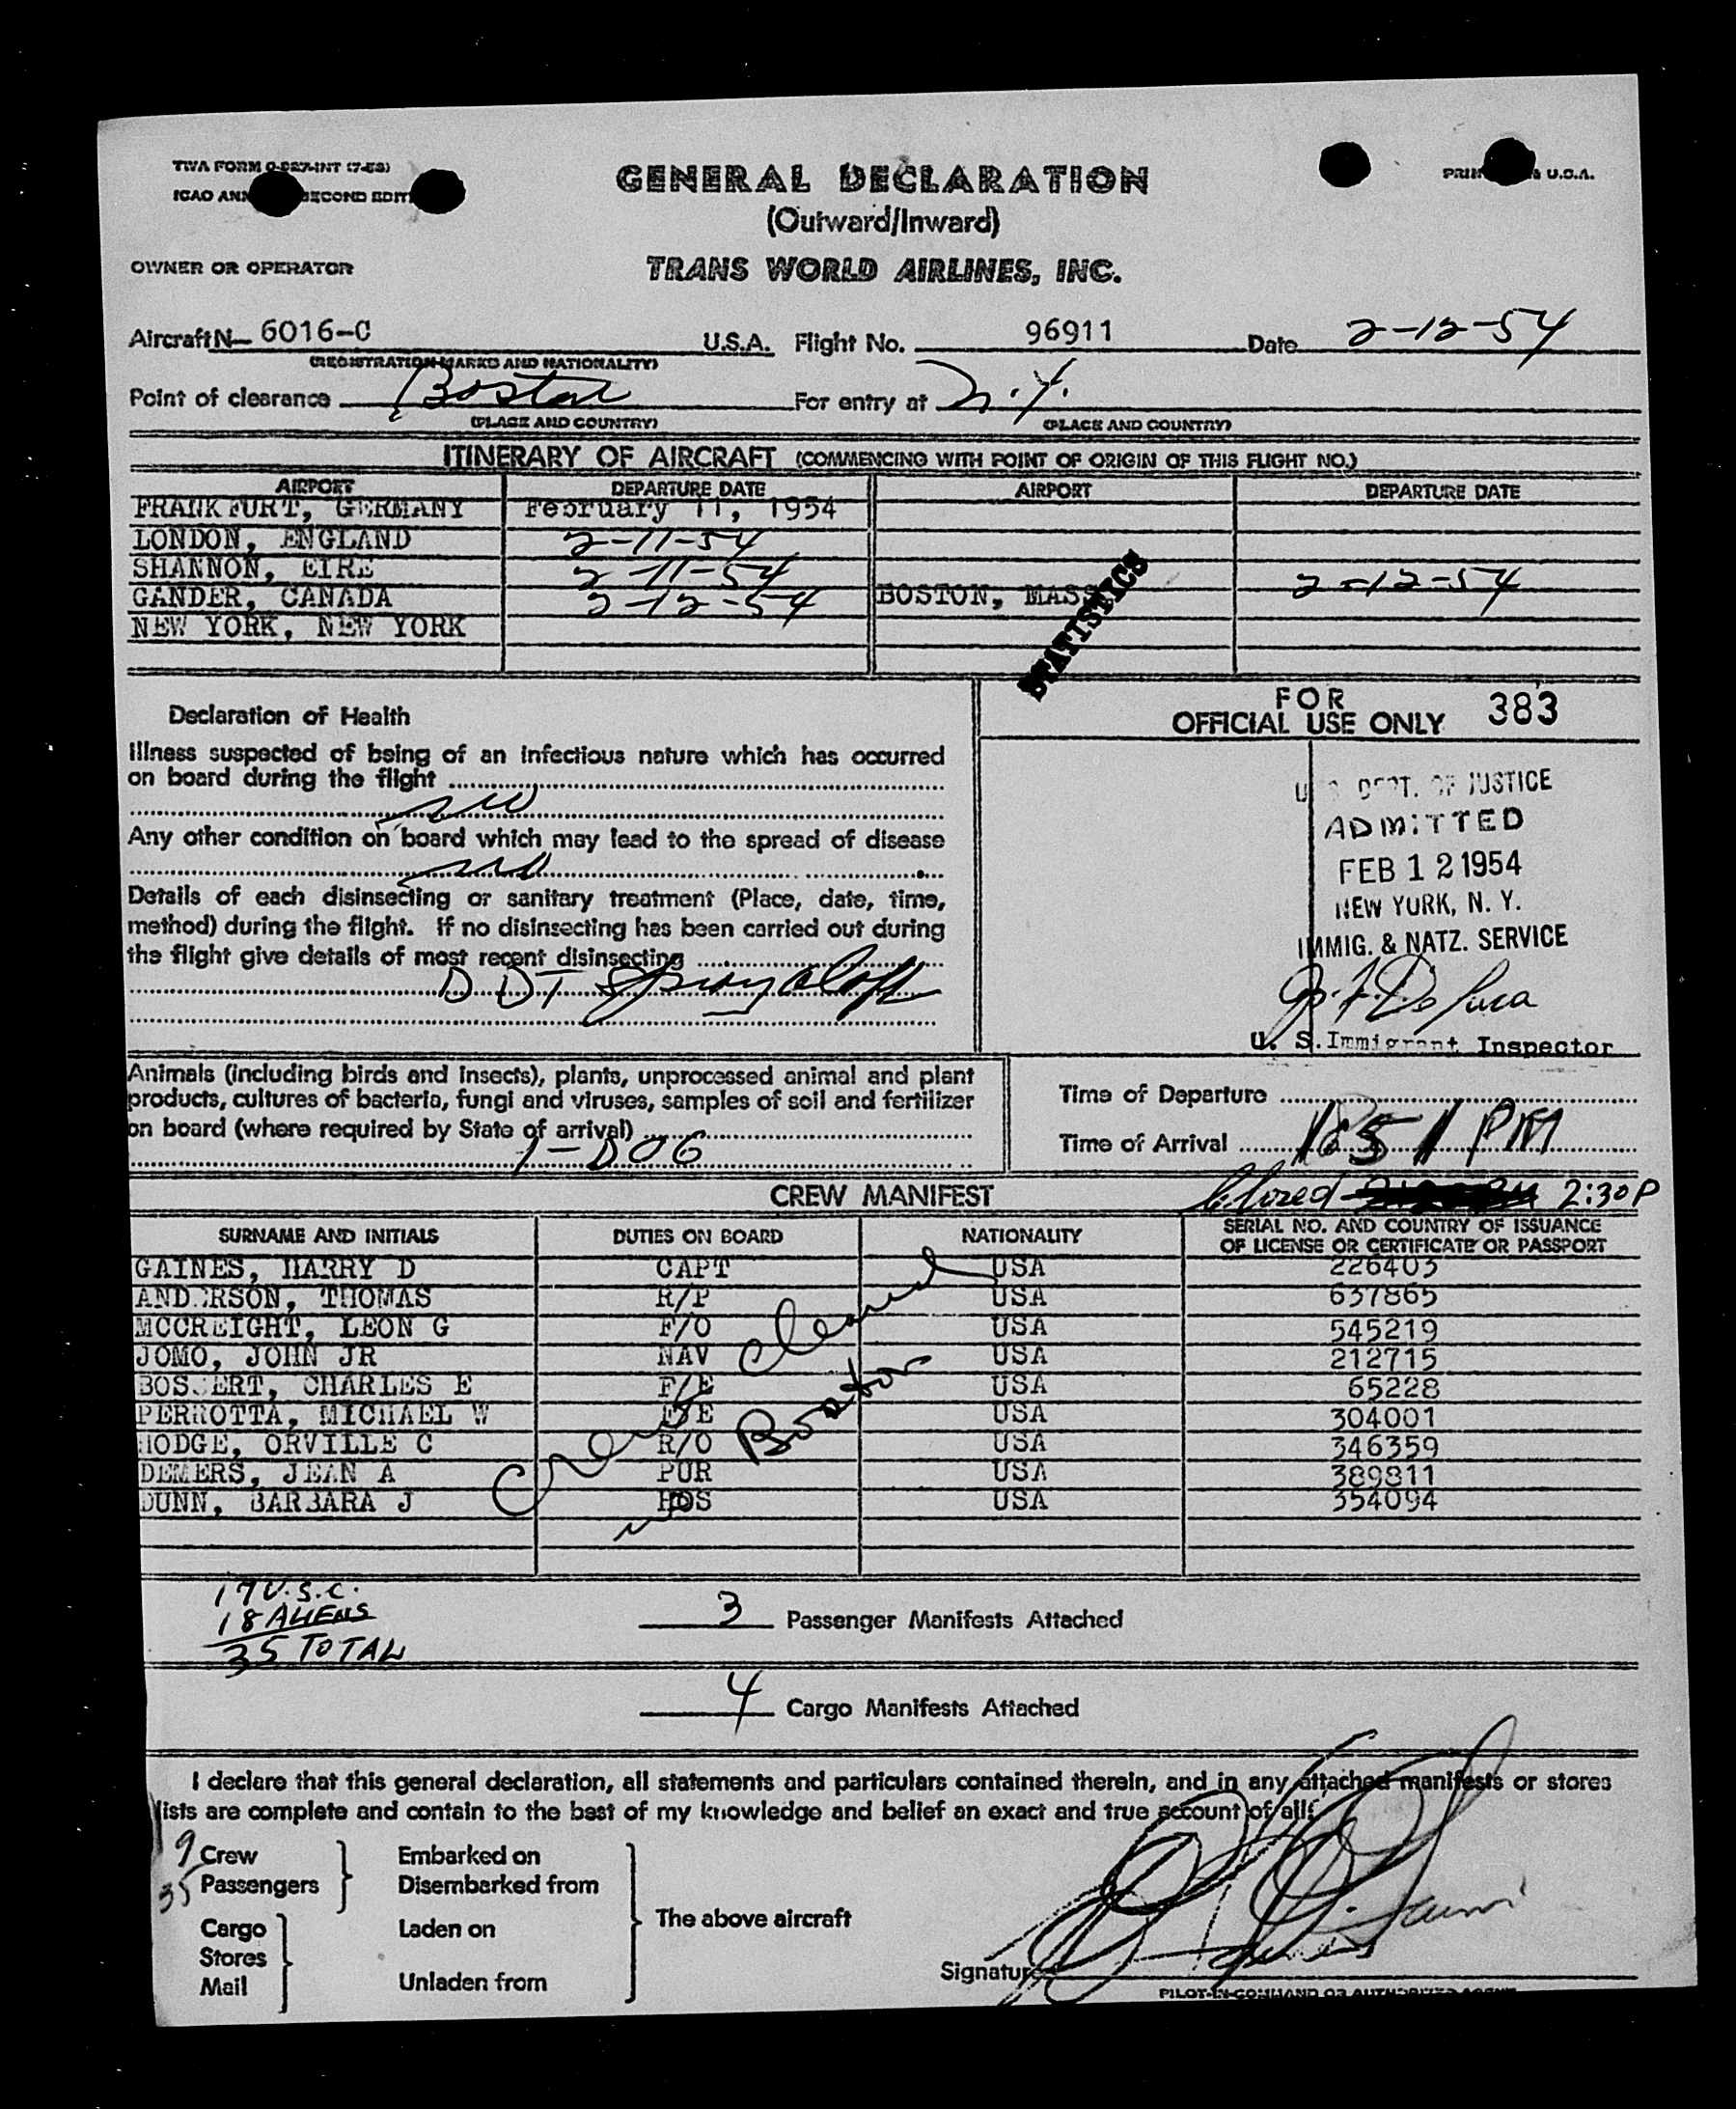 TWA FORM
ICAO SECOND
GENERAL DECLARATION
(Outward/Inward)
OWNER OR OPERATOR TRANS WORLD AIRLINES, INC.
Aircraft N— 6016-C U.S.A. Flight No. 96911 Date 2-12-54
(REGISTRATION MARKS AND NATIONALITY)
Point of clearance Boston For entry at N.Y.
(PLACE AND COUNTRY) (PLACE AND COUNTRY)
ITINERARY OF AIRCRAFT (COMMENCING WITH POINT OF ORIGIN OF THIS FLIGHT NO.)
AIRPORT DEPARTURE DATE AIRPORT DEPARTURE DATE
FRANKFURT, GERMANY February 11, 1954
LONDON, ENGLAND 2-11-54
SHANNON, EIRE 2-11-54
GANDER, CANADA 2-12-54 BOSTON, MASS 2-12-54
NEW YORK, NEW YORK
STATISTICS
Declaration of Health
Illness suspected of being of an infectious nature which has occurred
on board during the flight
no
Any other condition on board which may lead to the spread of disease
no
Details of each disinsecting or sanitary treatment (Place, date, time,
method) during the flight. If no disinsecting has been carried out during
the flight give details of most recent disinsecting
DDT Spray
FOR
OFFICIAL USE ONLY 383
U. S. DEPT. OF JUSTICE
ADMITTED
FEB 12 1954
NEW YORK, N. Y.
IMMIG. & NATZ. SERVICE
U. S. Immigrant Inspector
Animals (including birds and insects), plants, unprocessed animal and plant
products, cultures of bacteria, fungi and viruses, samples of soil and fertilizer
on board (where required by State of arrival)
1-DOG
Time of Departure
Time of Arrival PM
2:30 P
CREW MANIFEST
SURNAME AND INITIALS DUTIES ON BOARD NATIONALITY SERIAL NO. AND COUNTRY OF ISSUANCE
OF LICENSE OR CERTIFICATE OR PASSPORT
GAINES, HARRY D CAPT USA 226403
ANDERSON, THOMAS R/P USA 637865
MCCREIGHT, LEON G F/O USA 545219
JOMO, JOHN JR NAV USA 212715
BOSSERT, CHARLES E F/E USA 65228
PERROTTA, MICHAEL W F/E USA 304001
HODGE, ORVILLE C R/O USA 346359
DEMERS, JEAN A PUR USA 389811
DUNN, BARBARA J HOS USA 354094
Crew cleared
Boston
17 U.S.C.
18 ALIENS
35 TOTAL
3 Passenger Manifests Attached
4 Cargo Manifests Attached
I declare that this general declaration, all statements and particulars contained therein, and in any attached manifests or stores
lists are complete and contain to the best of my knowledge and belief an exact and true account of all:
9 Crew Embarked on
35 Passengers Disembarked from
The above aircraft
Cargo Laden on
Stores
Mail Unladen from
Signature
PILOT-IN-COMMAND OR AUTHORIZED AGENT